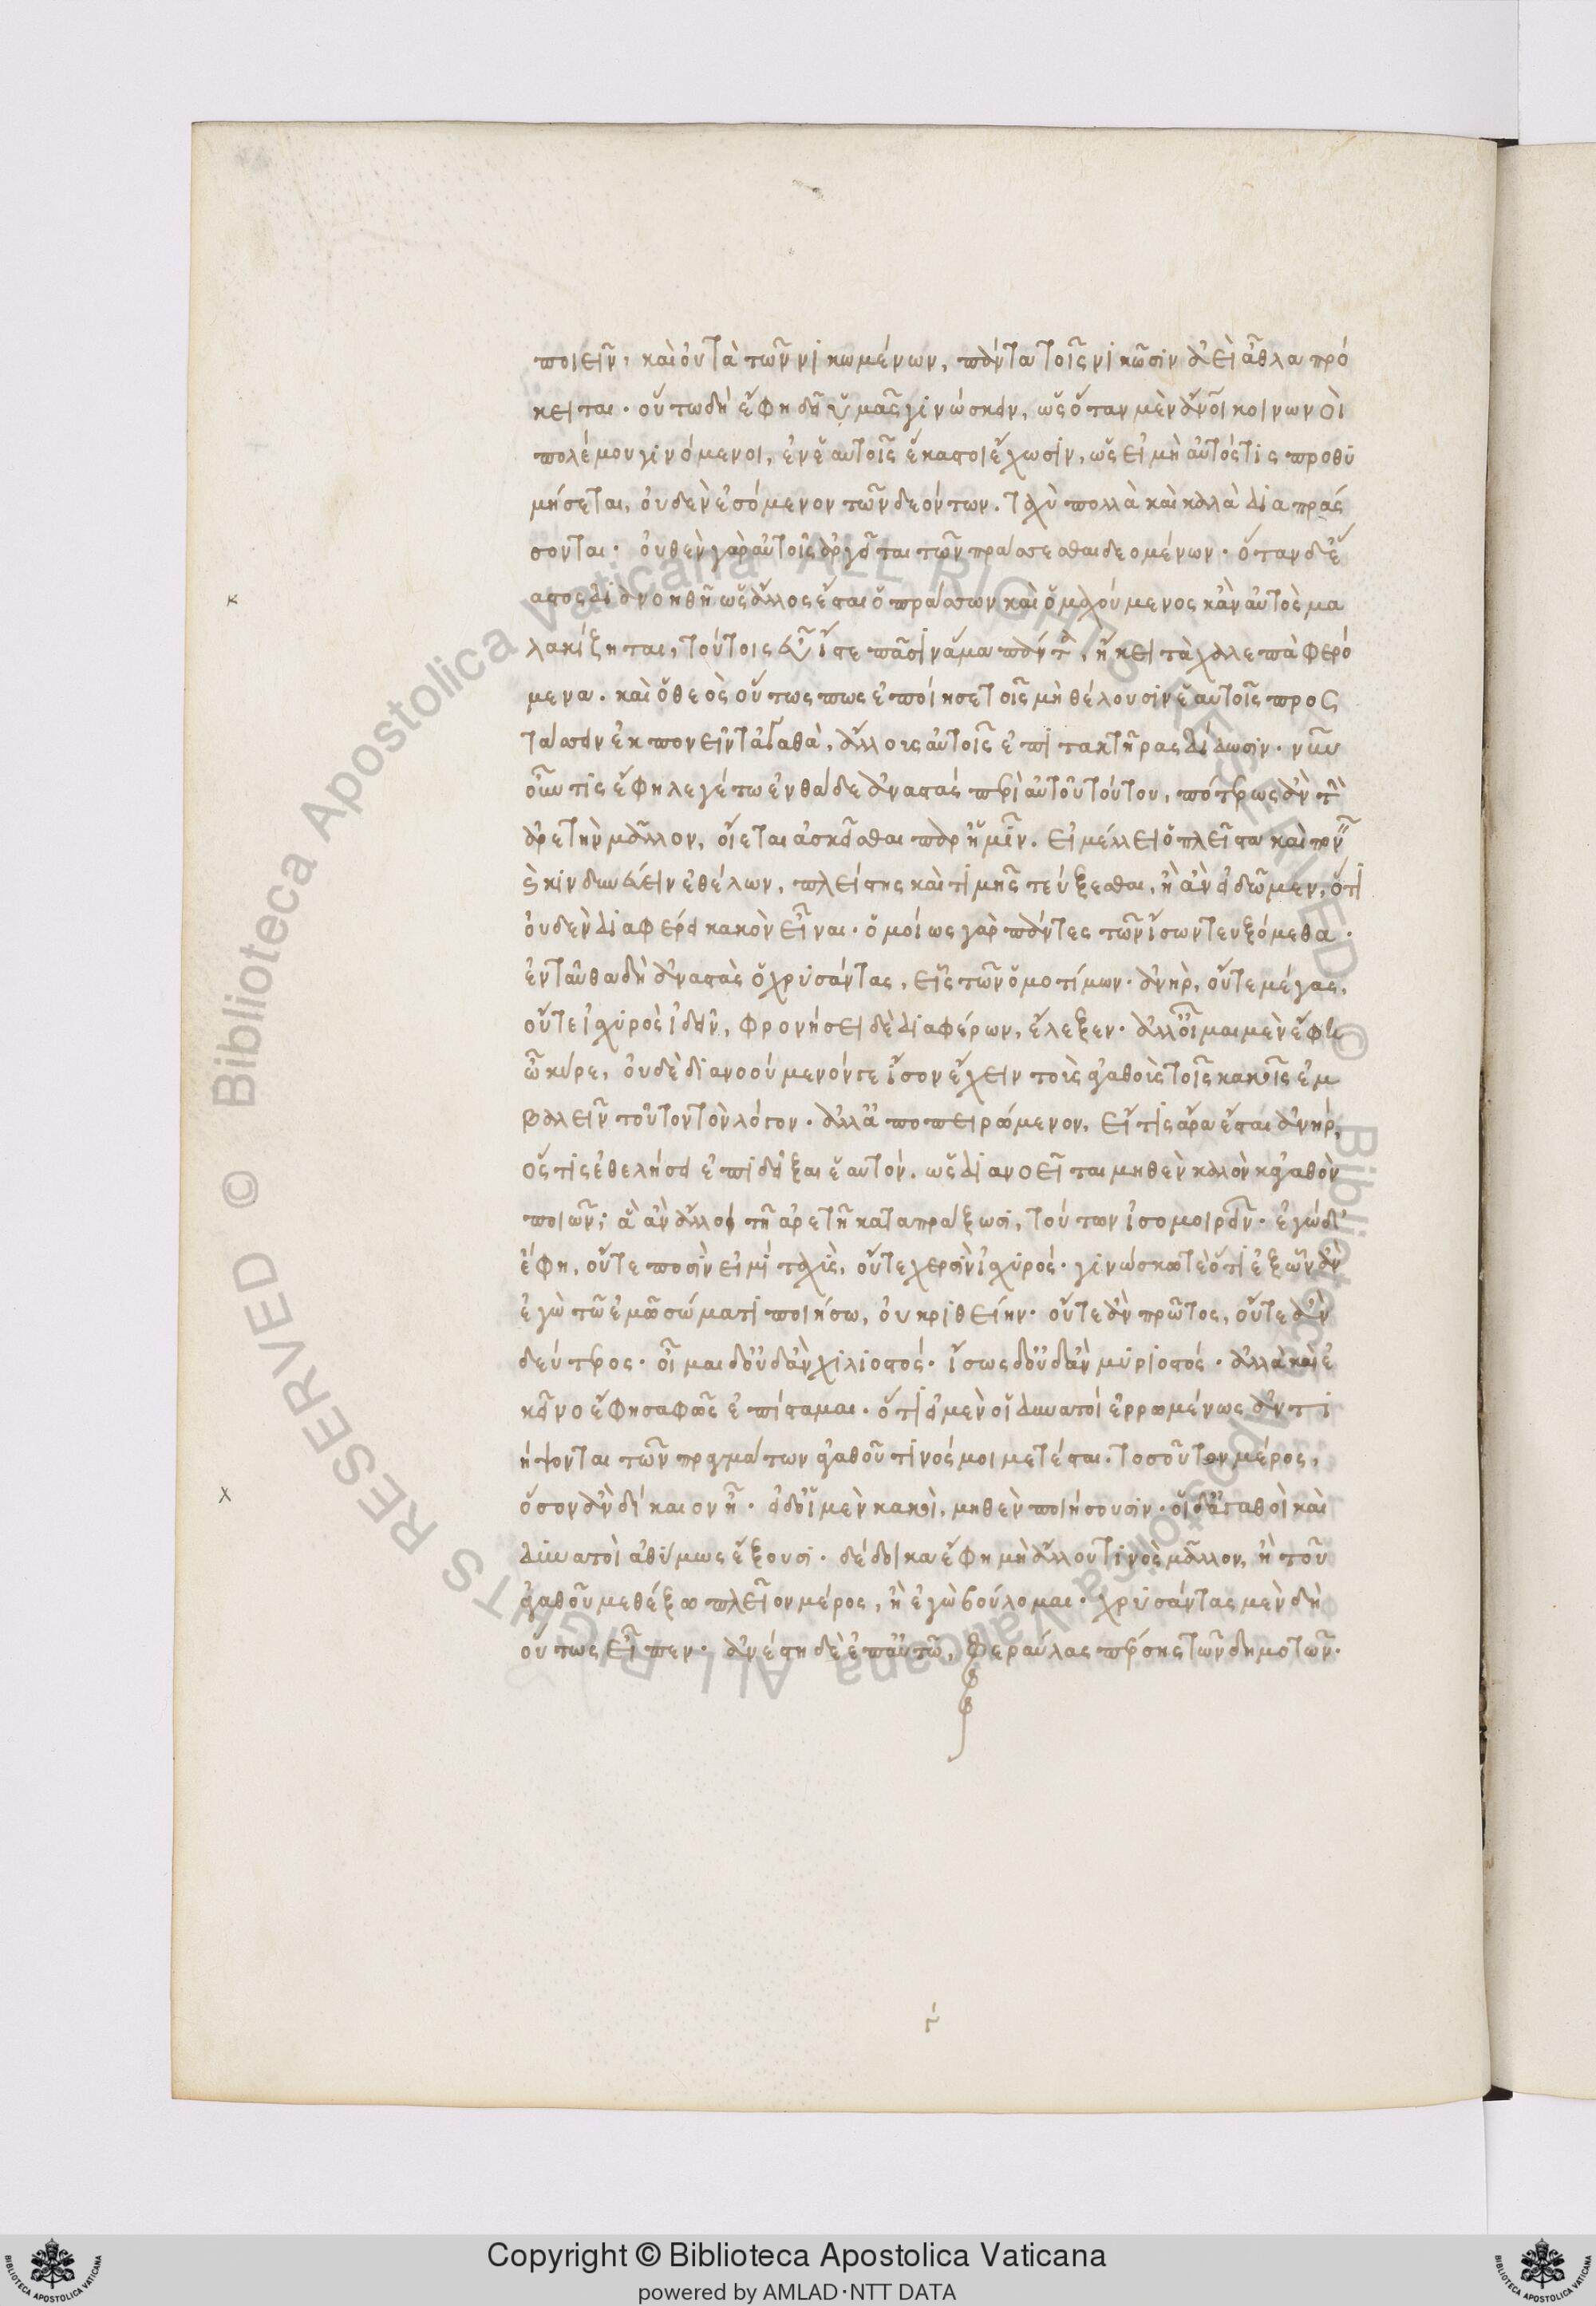 ποιεῖν, καὶ οὐ τὰ τῶν νικωμένων, πάντα τοῖς νικῶσιν ἀεὶ ἆθλα πρό
κειται. οὕτω δὴ ἔφη δεῖ ὑμᾶς γινώσκειν, ὡς ὅταν μὲν ἄνοι κοινωνοὶ
πολέμου γινόμενοι, ἐν ἑαυτοῖς ἕκαστοι ἔχωσιν, ὡς εἰ μὴ αὐτός τις προθυ
μήσεται, οὐδὲν ἐσόμενον τῶν δεόντων. ταχὺ πολλὰ καὶ καλὰ διαπράσ
σονται. οὐθὲν γὰρ αὐτοῖς ἀργεῖται τῶν πράττεσθαι δεομένων. ὅταν δὲ ἕ
αστος διανοηθῇ ὡς ἄλλος ἔσται ὁ πράττων καὶ ὁ μαχούμενος κἂν αὐτὸς μα
λακίζηται, τούτοις εὖ ἴστε πᾶσιν ἅμα πάντα, ἥκει τὰ χαλεπὰ φερό
μενα. καὶ ὁ θεὸς οὕτως πως ἐποίησε τοῖς μὴ θέλουσιν ἑαυτοῖς προσ
τάττειν ἐκπονεῖν τἀγαθὰ, ἄλλους αὐτοῖς ἐπιτακτῆρας δίδωσιν. νῦν
οὖν τις ἔφη λεγέτω ἐνθάδε ἀναστάς περὶ αὐτοῦ τούτου, ποτέρως ἂν τὴν
ἀρετὴν μᾶλλον, οἴεται ἀσκεῖσθαι παρ ἡμῖν. εἰ μέλλει ὁ πλεῖστα καὶ πονεῖν
καὶ κινδυνεύειν ἐθέλων, πλείστης καὶ τιμῆς τεύξεσθαι, ἢ ἂν εἰδῶμεν, ὅτι
οὐδὲν διαφέρει κακὸν εἶναι. ὁμοίως γὰρ πάντες τῶν ἴσων τευξόμεθα.
ἐνταῦθα δὴ ἀναστὰς ὁ χρυσάντας, εἷς τῶν ὁμοτίμων. ἀνὴρ, οὔτε μέγας,
οὔτε ἰσχυρὸς ἰδεῖν, φρονήσει δὲ διαφέρων, ἔλεξεν. ἀλλ' οἶμαι μὲν ἔφη
ὦ κύρε, οὐδὲ διανοούμενόν σε ἴσον ἔχειν τοῖς ἀγαθοῖς τοῖς κακοῖς ἐμ
βαλεῖν τοῦτον τὸν λόγον. ἀλλ' ἀποπειρώμενον, εἴ τις ἄρα ἔσται ἀνήρ,
ὅστις ἐθελήσει ἐπιδεῖξαι ἑαυτόν. ὡς διανοεῖται μηθὲν καλὸν κἀγαθὸν
ποιῶν, ἃ ἂν ἄλλοι τῇ ἀρετῇ καταπράξωσι, τούτων ἰσομοιρεῖν. ἐγὼ δ'
ἔφη, οὔτε ποσίν εἰμι ταχὺς, οὔτε χερσὶν ἰσχυρός. γινώσκω τε ὅτι ἐξ ὧν ἂν
ἐγὼ τῷ ἐμῷ σώματι ποιήσω, οὐ κριθείην. οὔτε ἂν πρῶτος, οὔτε ἂν
δεύτερος. οἶμαι δ' οὐδ' ἂν χιλιοστός. ἴσως δ' οὐδ' ἂν μυριοστός. ἀλλὰ καὶ ἐ
κεῖνο ἔφη σαφῶς ἐπίσταμαι. ὅτι εἰ μὲν οἱ δυνατοί ἐρρωμένως ἀντι
λήψονται τῶν πραγμάτων ἀγαθοῦ τινός μοι μετέσται. τοσοῦτον μέρος,
ὅσον ἂν δίκαιον ᾖ. εἰ δ' οἱ μὲν κακοὶ, μηθὲν ποιήσουσιν. οἱ δ' ἀγαθοὶ καὶ
δυνατοὶ ἀθύμως ἕξουσι. δέδοικα ἔφη μὴ ἄλλου τινὸς μᾶλλον, ἢ τοῦ
ἀγαθοῦ μεθέξω πλεῖον μέρος, ἢ ἐγὼ βούλομαι. χρυσάντας μὲν δὴ
οὕτως εἶπεν. ἀνέστη δὲ ἐπ' αὐτῷ, φεραύλας πέρσης τῶν δημοτῶν.
© Biblioteca Apostolica Vaticana ALL RIGHTS RESERVED
Copyright © Biblioteca Apostolica Vaticana
powered by AMLAD·NTT DATA
BIBLIOTECA APOSTOLICA VATICANA
BIBLIOTECA APOSTOLICA VATICANA